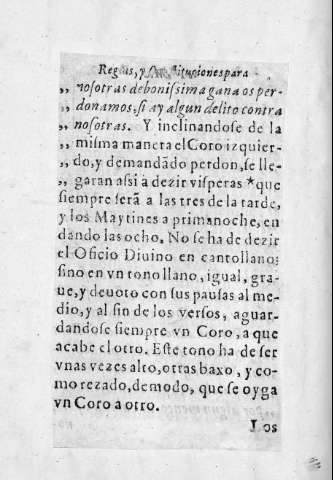 Reglas, y Constituciones para
,, nosotras de bonissima gana os per-
,, donamos, si ay algun delito contra
,, nosotras. Y inclinandose de la
,, misma manera el Coro izquier-
,, do, y demandãdo perdon, se lle-
,, garan assi à dezir visperas *que
siempre serã a las tres de la tarde,
y los Maytines a prima noche, en
dando las ocho. No se ha de dezir
el Oficio Diuino en canto llano:
sino en vn tono llano, igual, gra-
ue, y deuoto con sus pausas al me-
dio, y al fin de los versos, aguar-
dandose siempre vn Coro, a que
acabe el otro. Este tono ha de ser
vnas vezes alto, otras baxo, y co-
mo rezado, de modo, que se oyga
vn Coro a otro.
Los